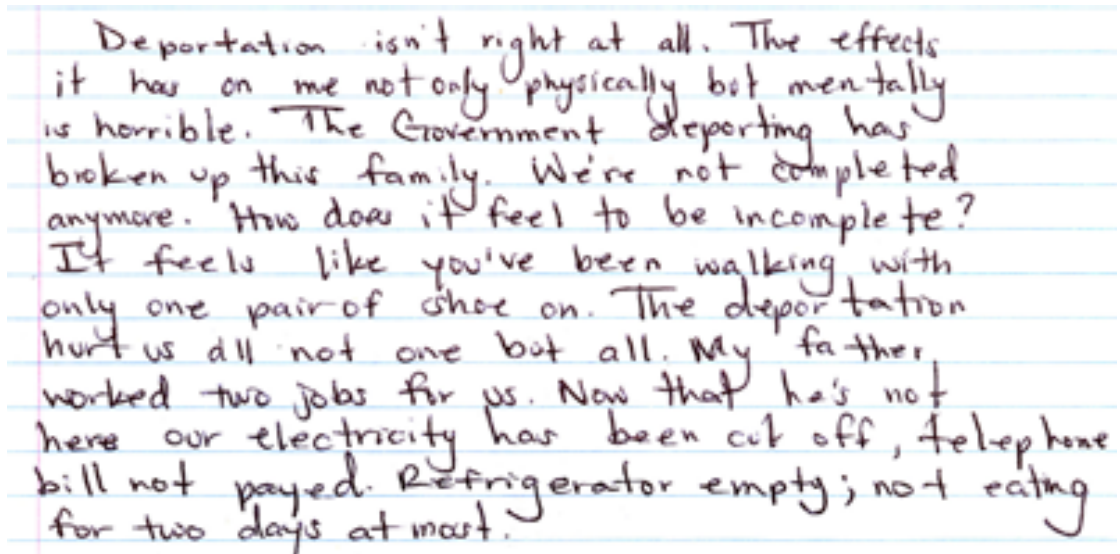 Deportation isn't right at all. The effects
it has on me not only physically but mentally
is horrible. The Government deporting has
broken up this family. We're not completed
anymore. How does it feel to be incomplete?
It feels like you've been walking with
only one pair of shoe on. The deportation
hurt us all not one but all. My father
worked two jobs for us. Now that he's not
here our electricity has been cut off, telephone
bill not payed. Refrigerator empty; not eating
for two days at most.